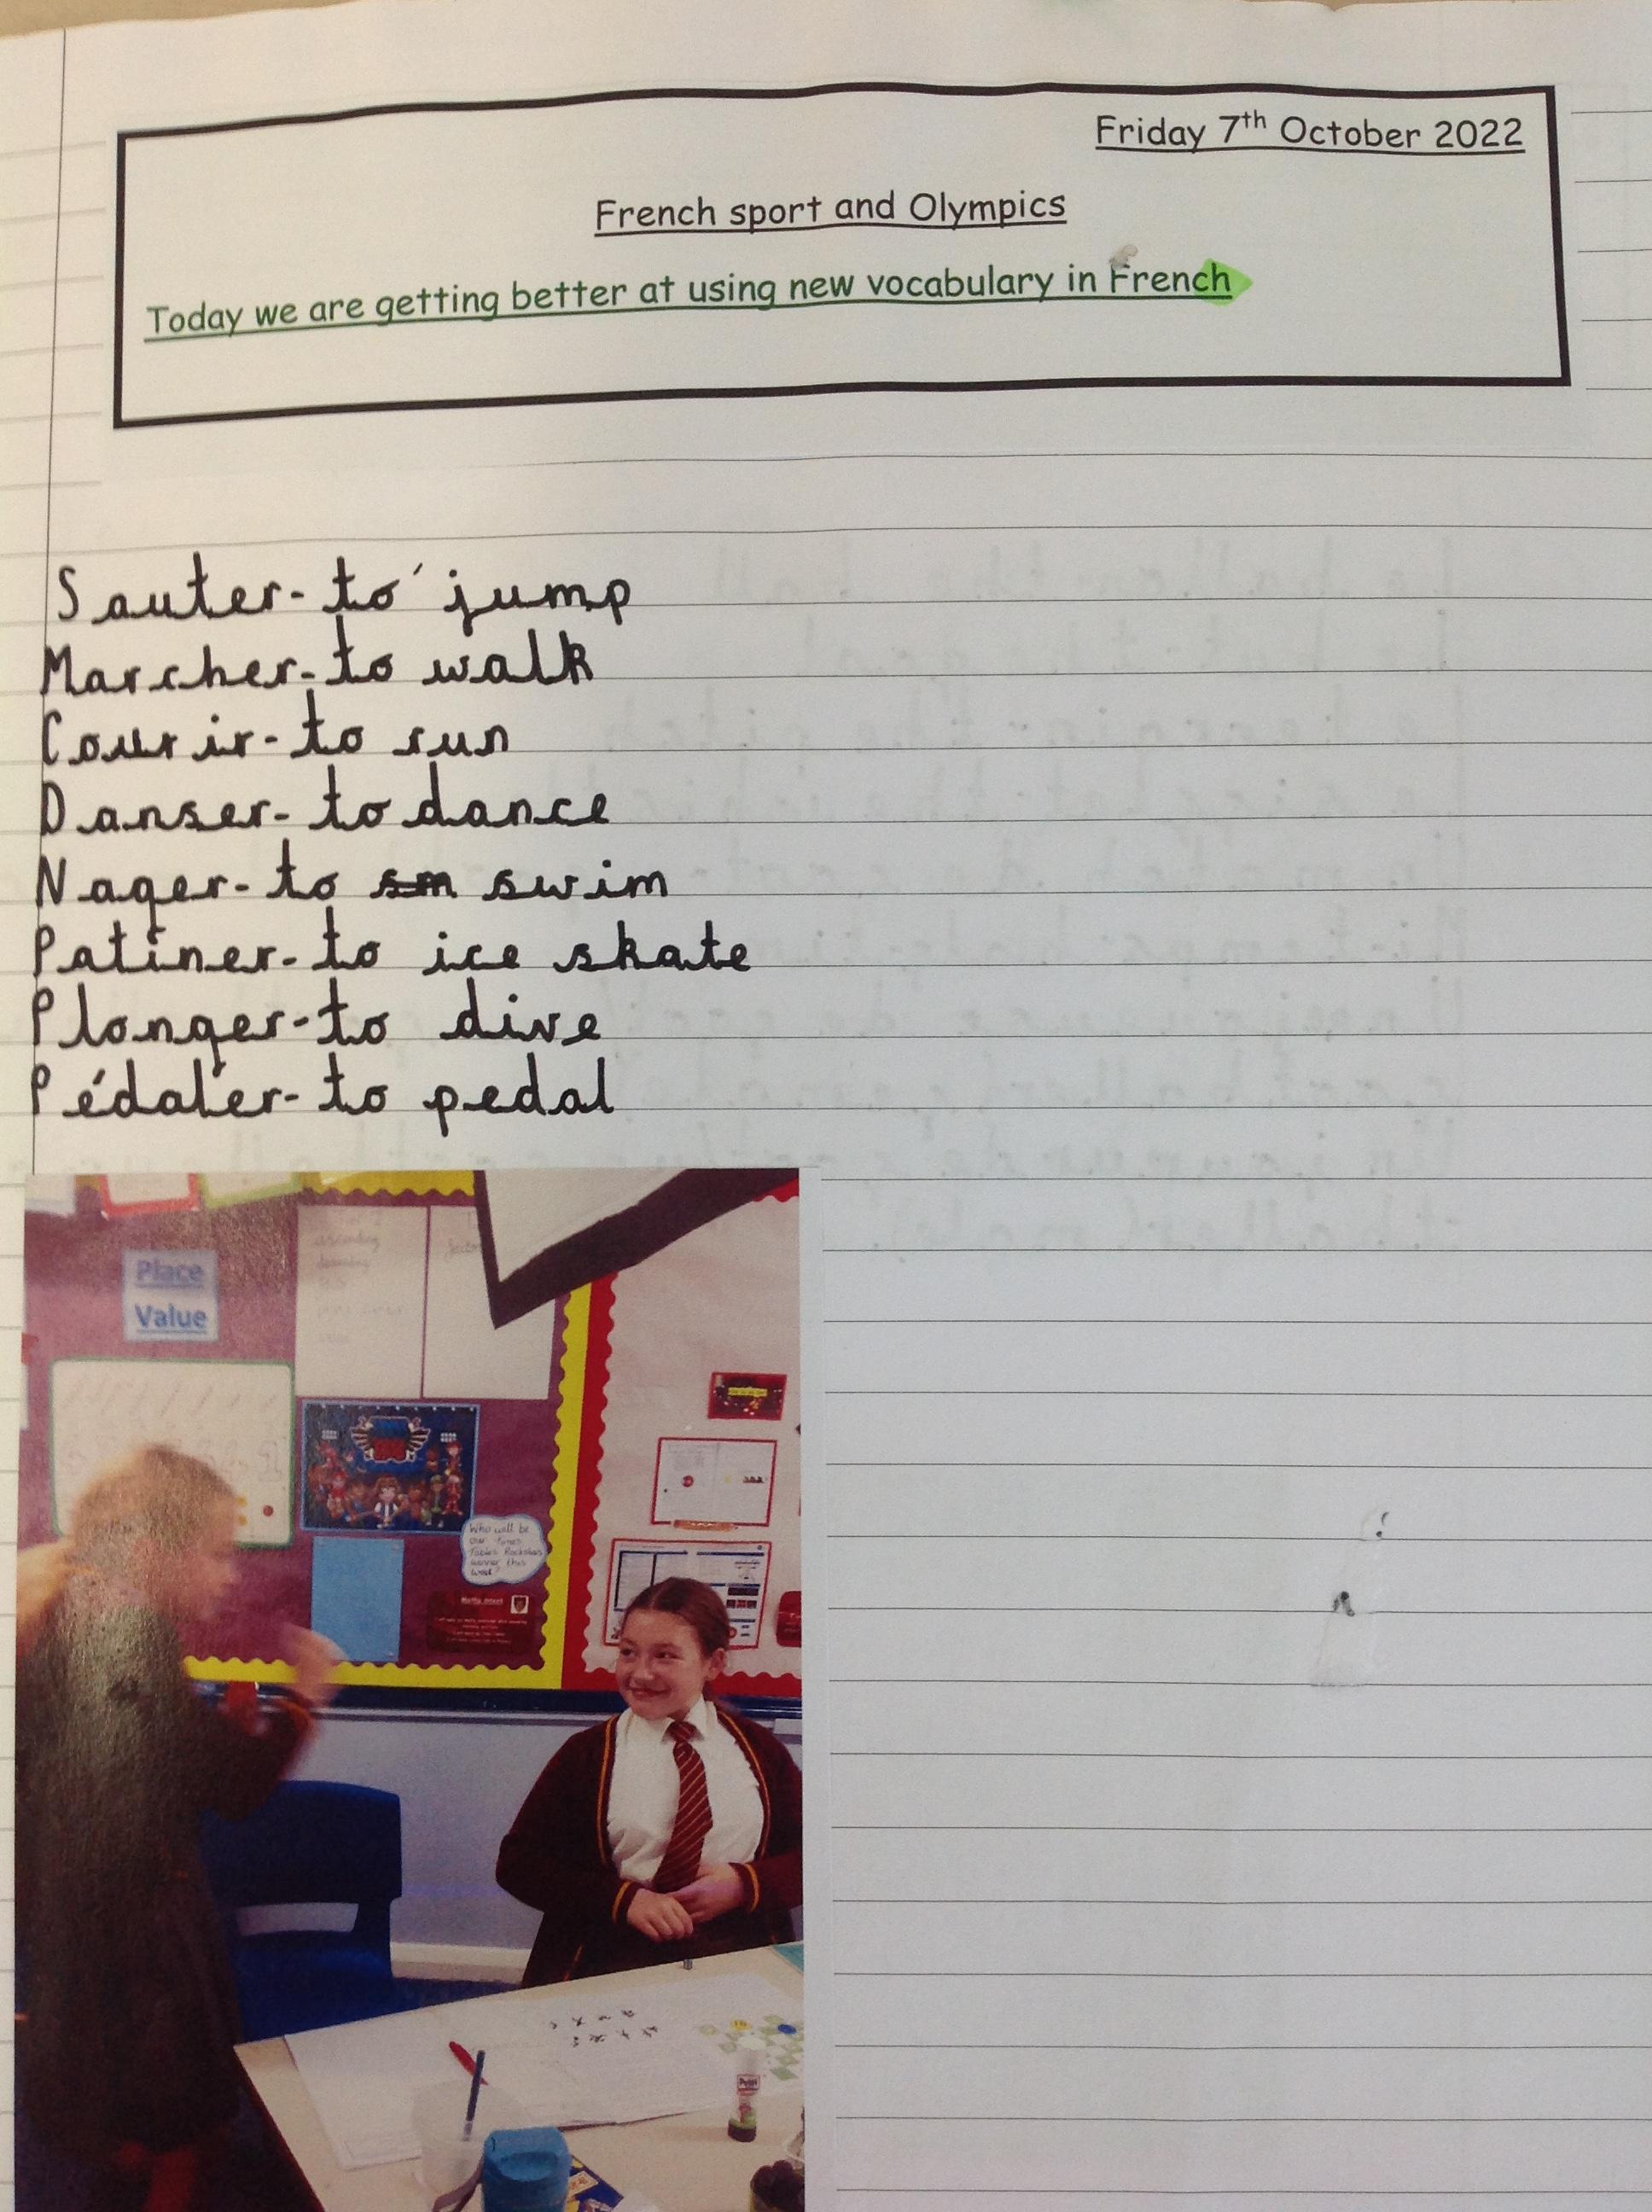 Friday 7th October 2022
French sport and Olympics
Today we are getting better at using new vocabulary in French
Sauter- to jump
Marcher- to walk
Courir- to run
Danser- to dance
Nager- to sm swim
Patiner- to ice skate
Plonger- to dive
Pédaler- to pedal
Place
Value
Who will be
our Times
Tables Rockstars
winner this
week?
Pritt